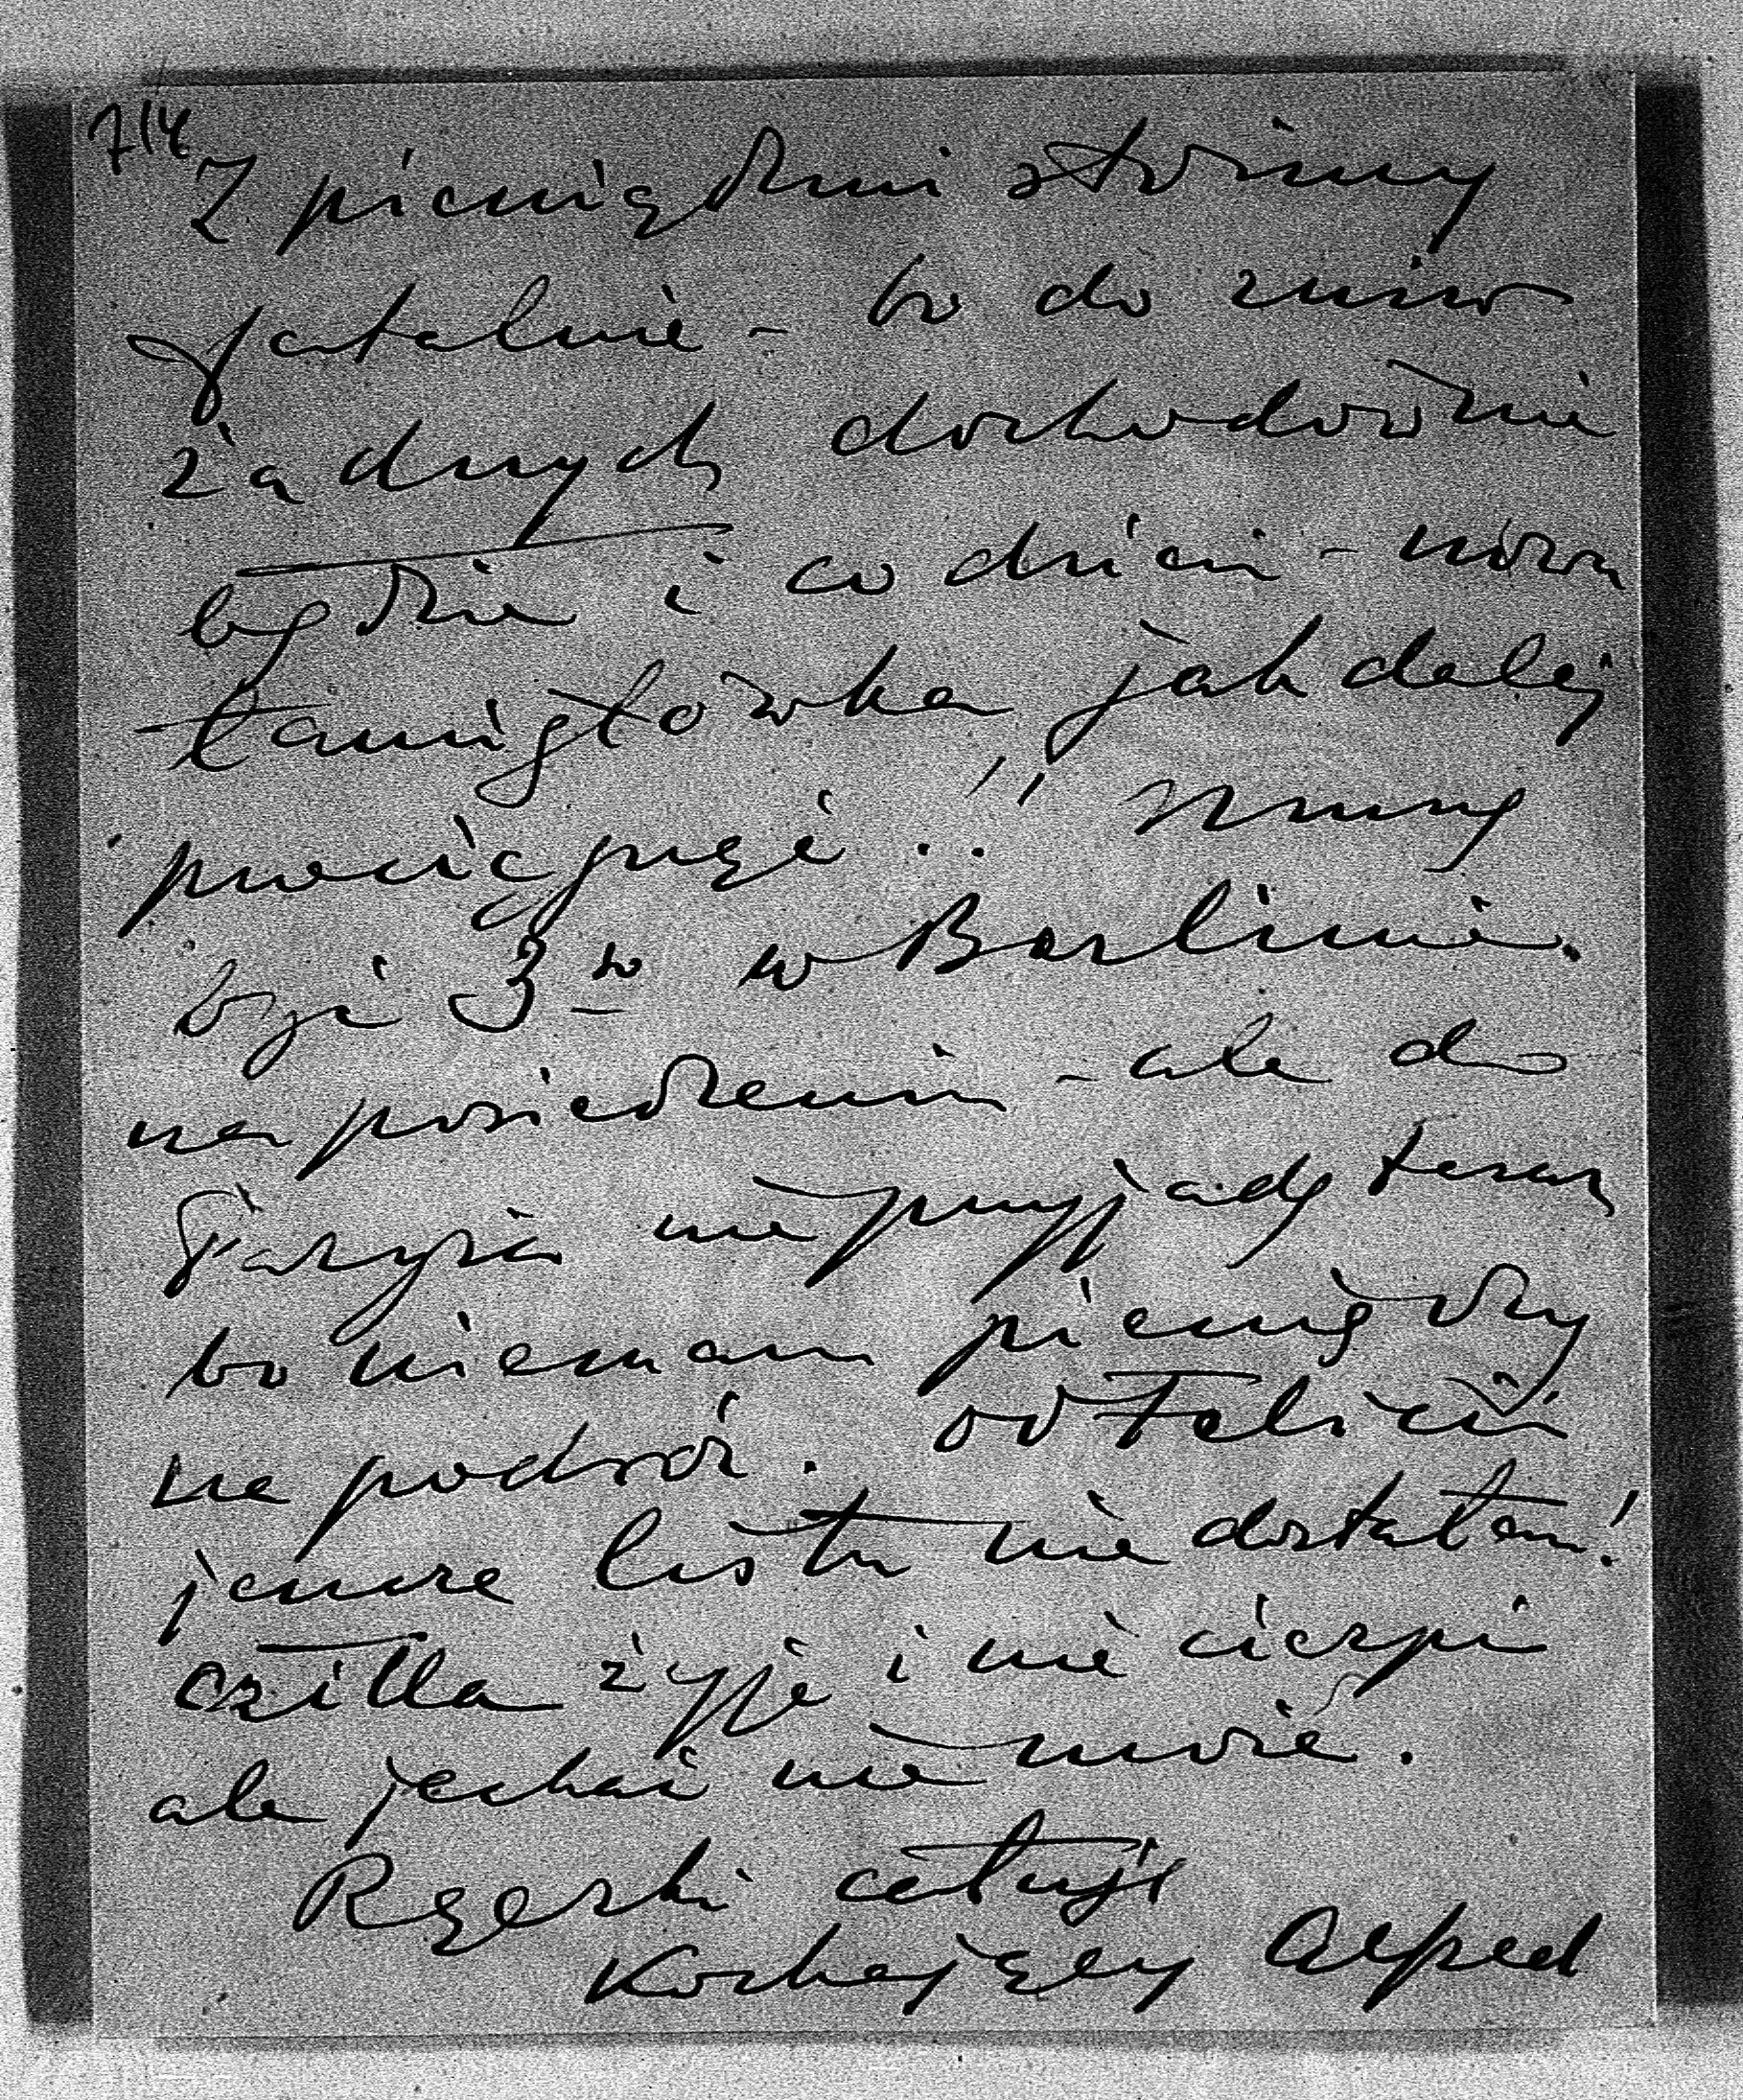 714
Z pieniędzmi stoimy
fatalnie – bo do żniw
żadnych dochodów nie
będzie i co dzień – nowa
łamigłówka jak dalej
przeciągnąć..!! Muszę
być 3go w Berlinie.
na posiedzeniu – ale do
Paryża nie przyjadę teraz
bo niemam pieniędzy
na podróż. od Felicii
jeszcze listu nie dostałem!
żyje i nie cierpi
ale jechać nie może.
Rączki całuję
Kochający Alfred